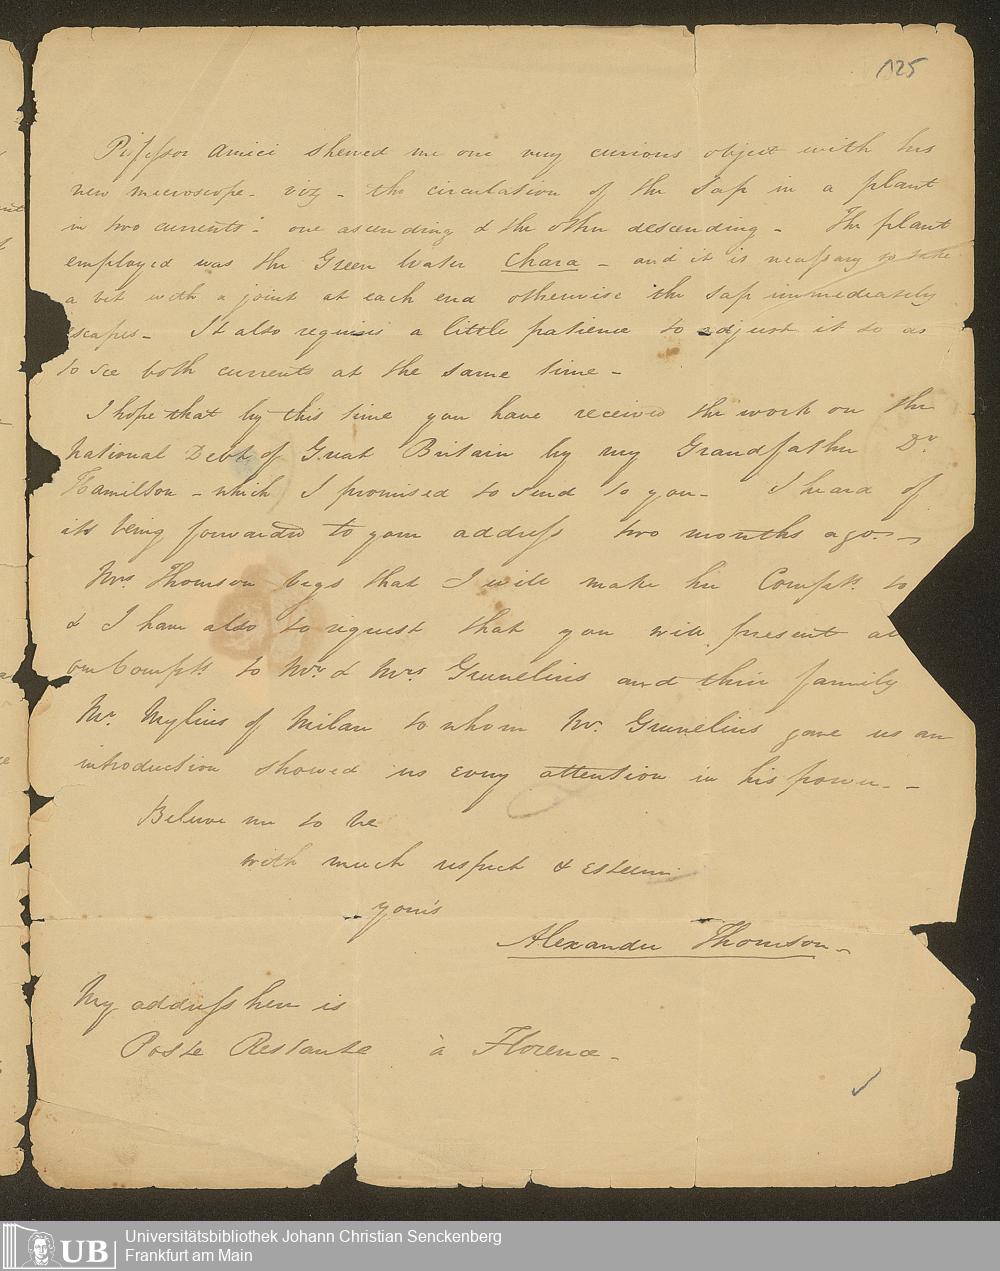 125
Professor Amici shewed me one very curious object with his
new microscope - viz - the circulation of the Sap in a plant
in two currents - one ascending & the other descending - The plant
employed was the Green Water Chara - and it is necessary to take
a bit with a joint at each end otherwise the sap immediately
escapes - It also requires a little patience to adjust it so as
to see both currents at the same time -
I hope that by this time you have received the work on the
National Debt of Great Britain by my Grandfather Dr.
Hamilton - which I promised to send to you - I heard of
its being forwarded to your address two months ago. -
Mrs Thomson begs that I will make her Compts. to
& I have also to request that you will present all
our Compts. to Mr. & Mrs. Grunelius and their family
Mr. Mylius of Milan to whom Mr. Grunelius gave us an
introduction showed us every attention in his power. -
Believe me to be
with much respect & esteem
your's
Alexander Thomson -
My address here is
Poste Restante à Florence -
UB
Universitätsbibliothek Johann Christian Senckenberg
Frankfurt am Main